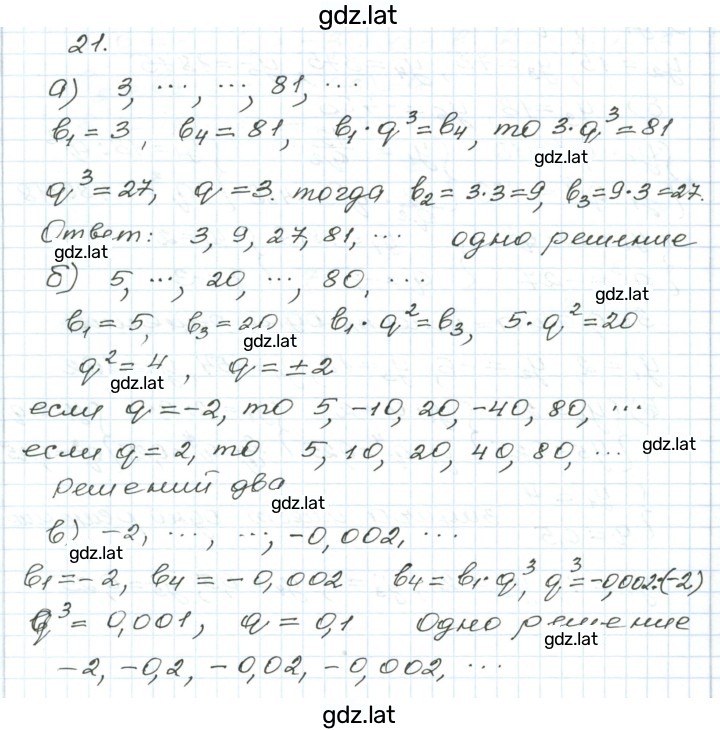 gdz.lat
21.
а) 3, ..., ..., 81, ...
b₁ = 3, b₄ = 81, b₁ · q³ = b₄, то 3 · q³ = 81
gdz.lat
q³ = 27, q = 3. тогда b₂ = 3·3 = 9, b₃ = 9·3 = 27.
Ответ: 3, 9, 27, 81, ... одно решение
gdz.lat
б) 5, ..., 20, ..., 80, ...
gdz.lat
b₁ = 5, b₃ = 20 b₁ · q² = b₃, 5 · q² = 20
gdz.lat
q² = 4, q = ±2
gdz.lat
если q = -2, то 5, -10, 20, -40, 80, ...
если q = 2, то 5, 10, 20, 40, 80, ...
gdz.lat
решений два
gdz.lat
в) -2, ..., ..., -0,002, ...
gdz.lat
b₁ = -2, b₄ = -0,002 b₄ = b₁ · q³, q³ = -0,002:(-2)
q³ = 0,001, q = 0,1 Одно решение
gdz.lat
-2, -0,2, -0,02, -0,002, ...
gdz.lat